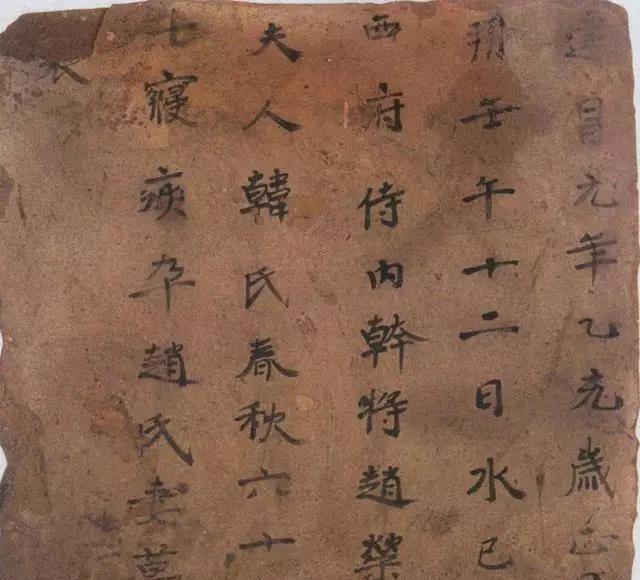 建昌元年乙亥歲正
朔壬午十二日水巳
西府侍內幹將趙榮
夫人韓氏春秋六十
七寢疾卒趙氏妻墓
表